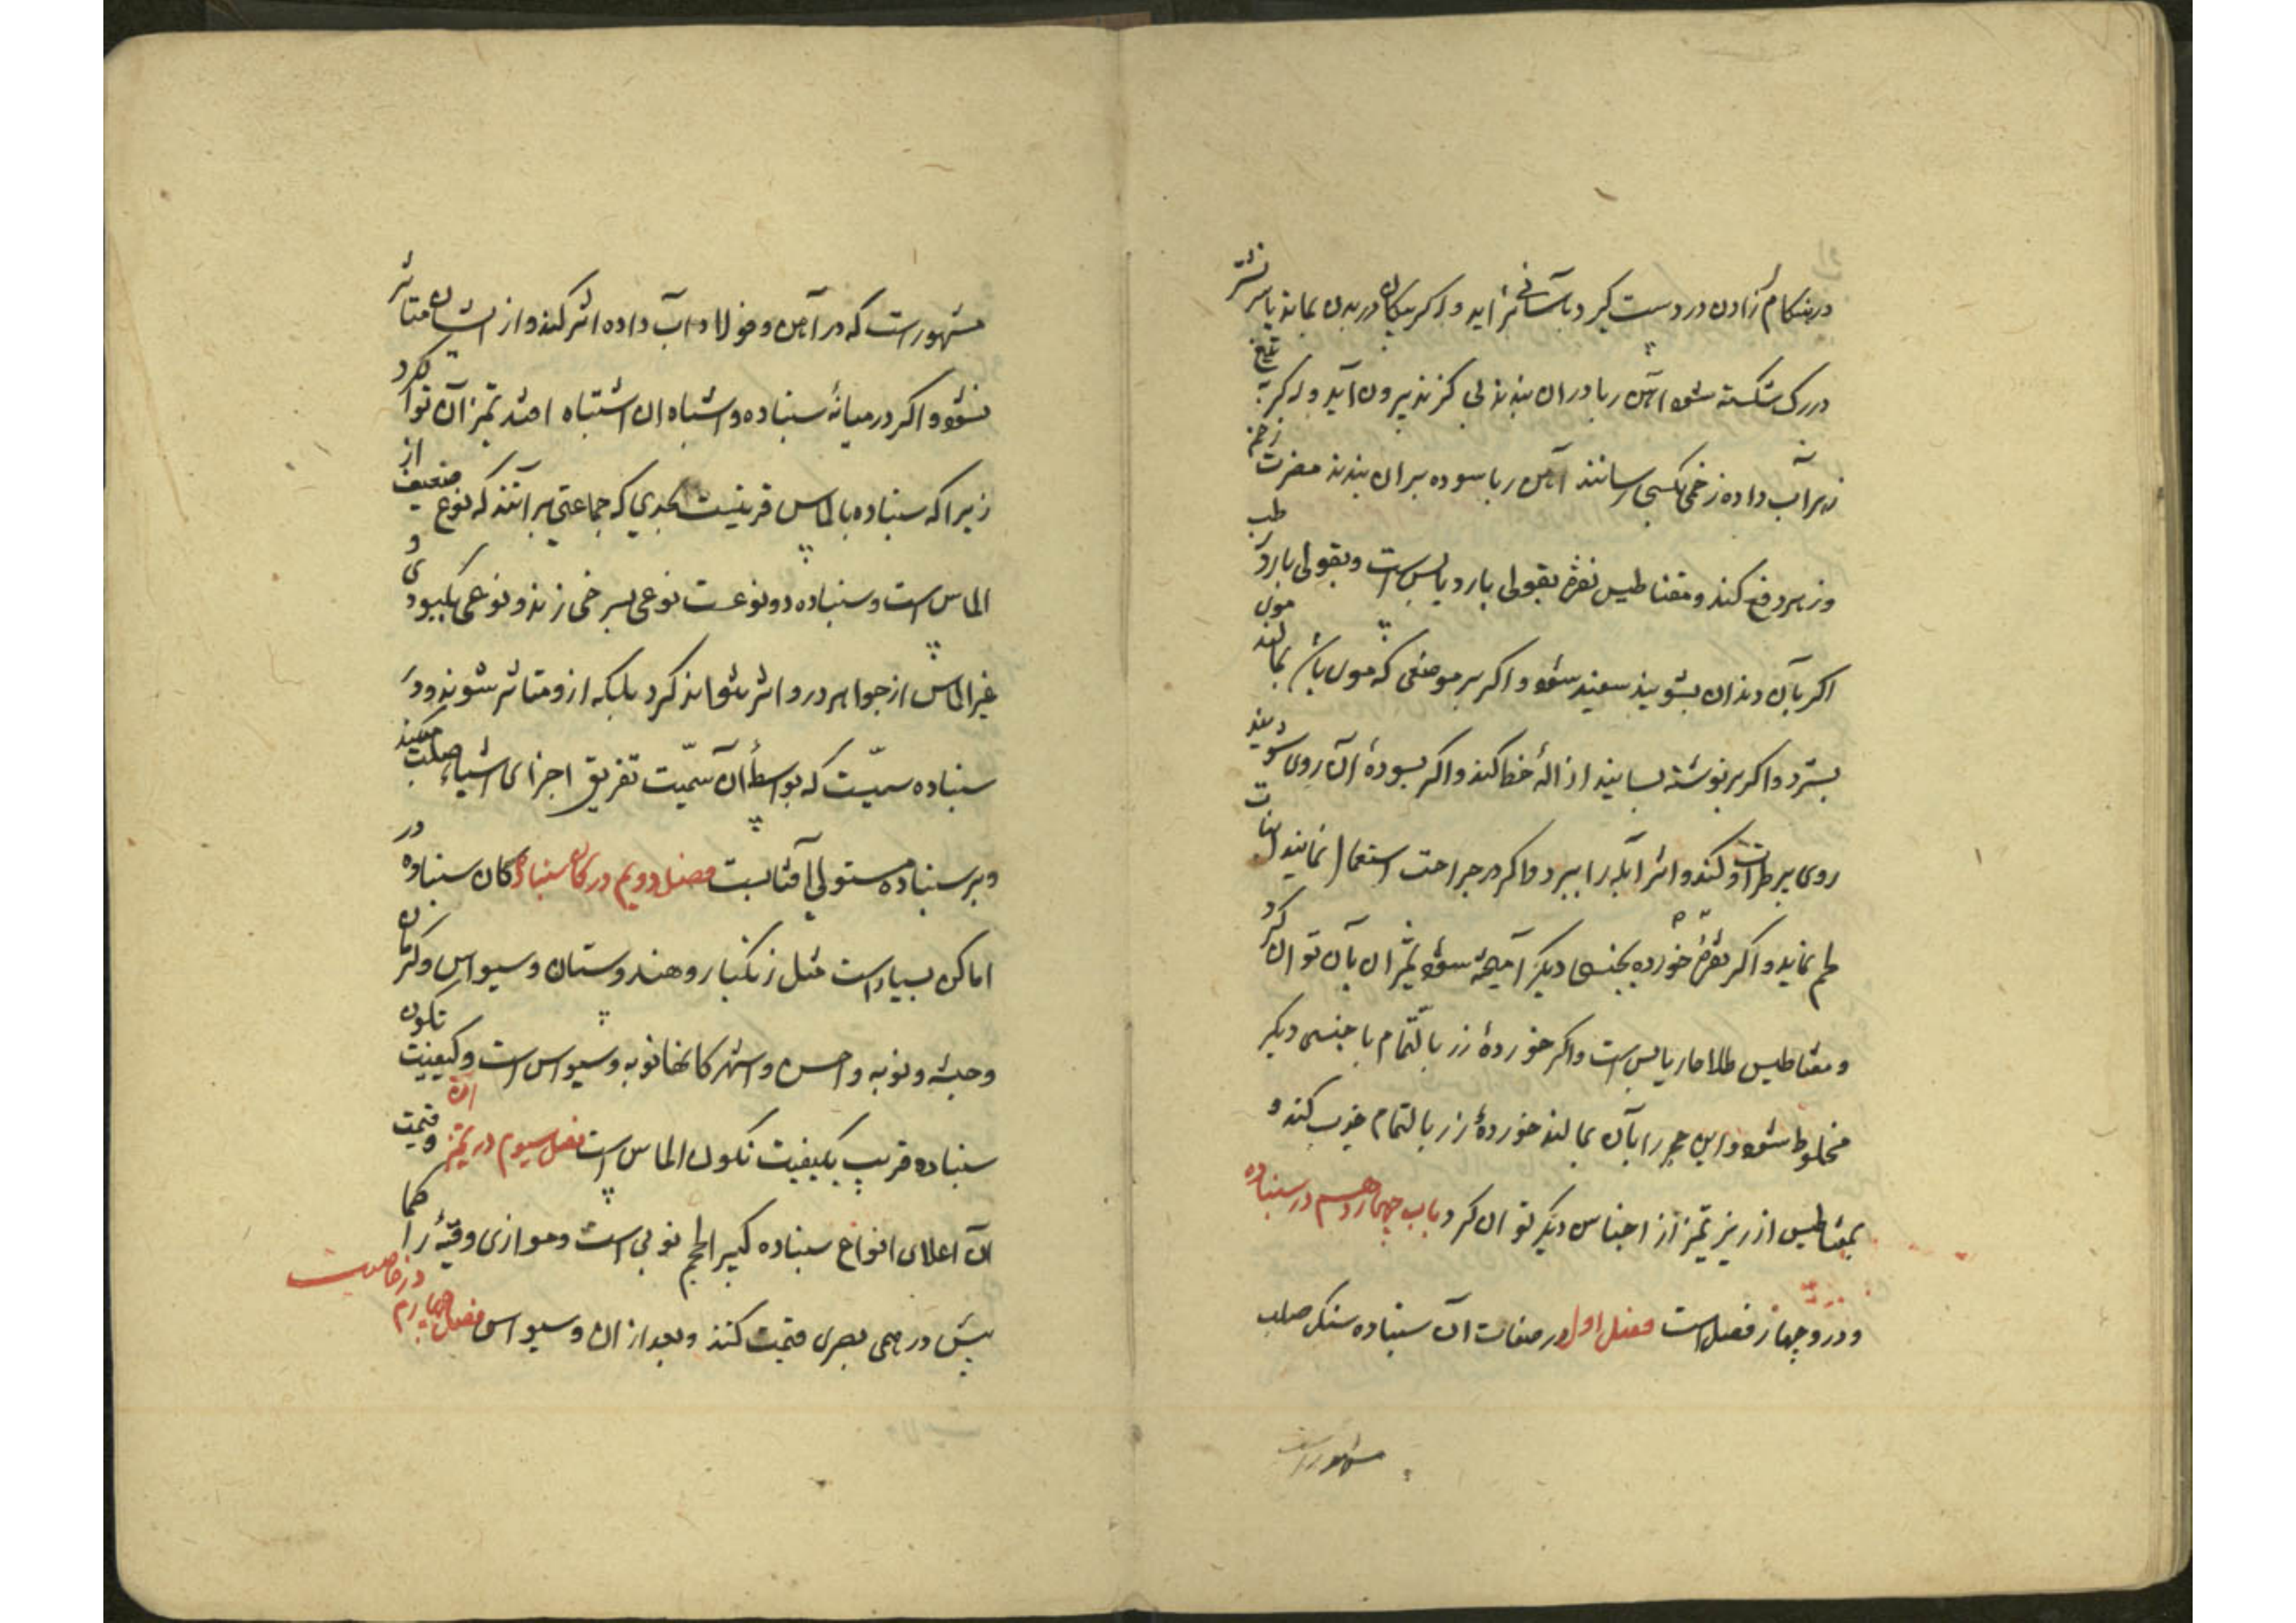 در هنکام زادن در دست کیرد باسانی بزاید و اکر پیکان در بدن بماند یا سر نشتر
در رک شکسته شود آهن ربا در ان بندند بی کزند بیرون آید و اکر بتیغ
زهر آب داده زخمی بکسی رسانند آهن ربا سوده بران بندند مضرت زخم
و زهر دفع کند و مقناطیس نقره بقولی بارد یابس است و بقولی بارد رطب
اکر بآن دندان بشویند سفید شود و اکر بر موضعی که موی باشد بمالند موی
بسترد و اکر بر نوشته بسایند ازالهٔ خط کند و اکر بسودهٔ آن روی شویند
روی بر طراوت کند و اثر آبله را ببرد و اکر در جراحت استعمال نمایند انبات
لحم نماید و اکر نقرهٔ خورده بجنسی دیکر آمیخته شود تمیز ان بآن توان کرد
و مقناطیس طلا حار یابس است و اکر خوردهٔ زر بالتمام با جنسی دیکر
مخلوط شود و این حجر را بآن بمالند خوردهٔ زر بالتمام جذب کند و
بمقناطیس ارزیز تمیز از اجناس دیکر توان کرد باب چهاردهم در سنباده
و درو چهار فصل است فصل اول در صفات آن سنباده سنک صلب
مشهور است
مشهور است که در آهن و فولاد آب داده اثر کند و از ایشان متاثر
نشود و اکر در میانهٔ سنباده و اشباه ان اشتباه افتد تمیز آن توان کرد
زیرا که سنباده بالماس قرینست بحدی که جماعتی برآنند که نوع ضعیف از
الماس است و سنباده دو نوعست نوعی بسرخی زند و نوعی بکبودی و
غیر الماس از جواهر درو اثر نتواند کرد بلکه ازو متاثر شوند و در
سنباده سمیّت که بواسطهٔ آن سمیّت تفریق اجزای اشیاء صلب میکند
و بر سنباده مستولی آفتابست فصل دویم در کان سنباده کان سنباده در
اماکن بسیار است مثل زنکبار و هندوستان و سیواس و کرمان
و حبشه و نوبه و احسن و اشهر کانها نوبه و سیواس است و کیفیت تکون
سنباده قریب بکیفیت تکون الماس است فصل سیوم در تمیز و قیمت
آن اعلای انواع سنباده کبیر الحجم نوبی است و موازی وقیهٔ را کما
بیش درهمی بصری قیمت کنند و بعد ازان و سیواس فصل چهارم در خاصیت